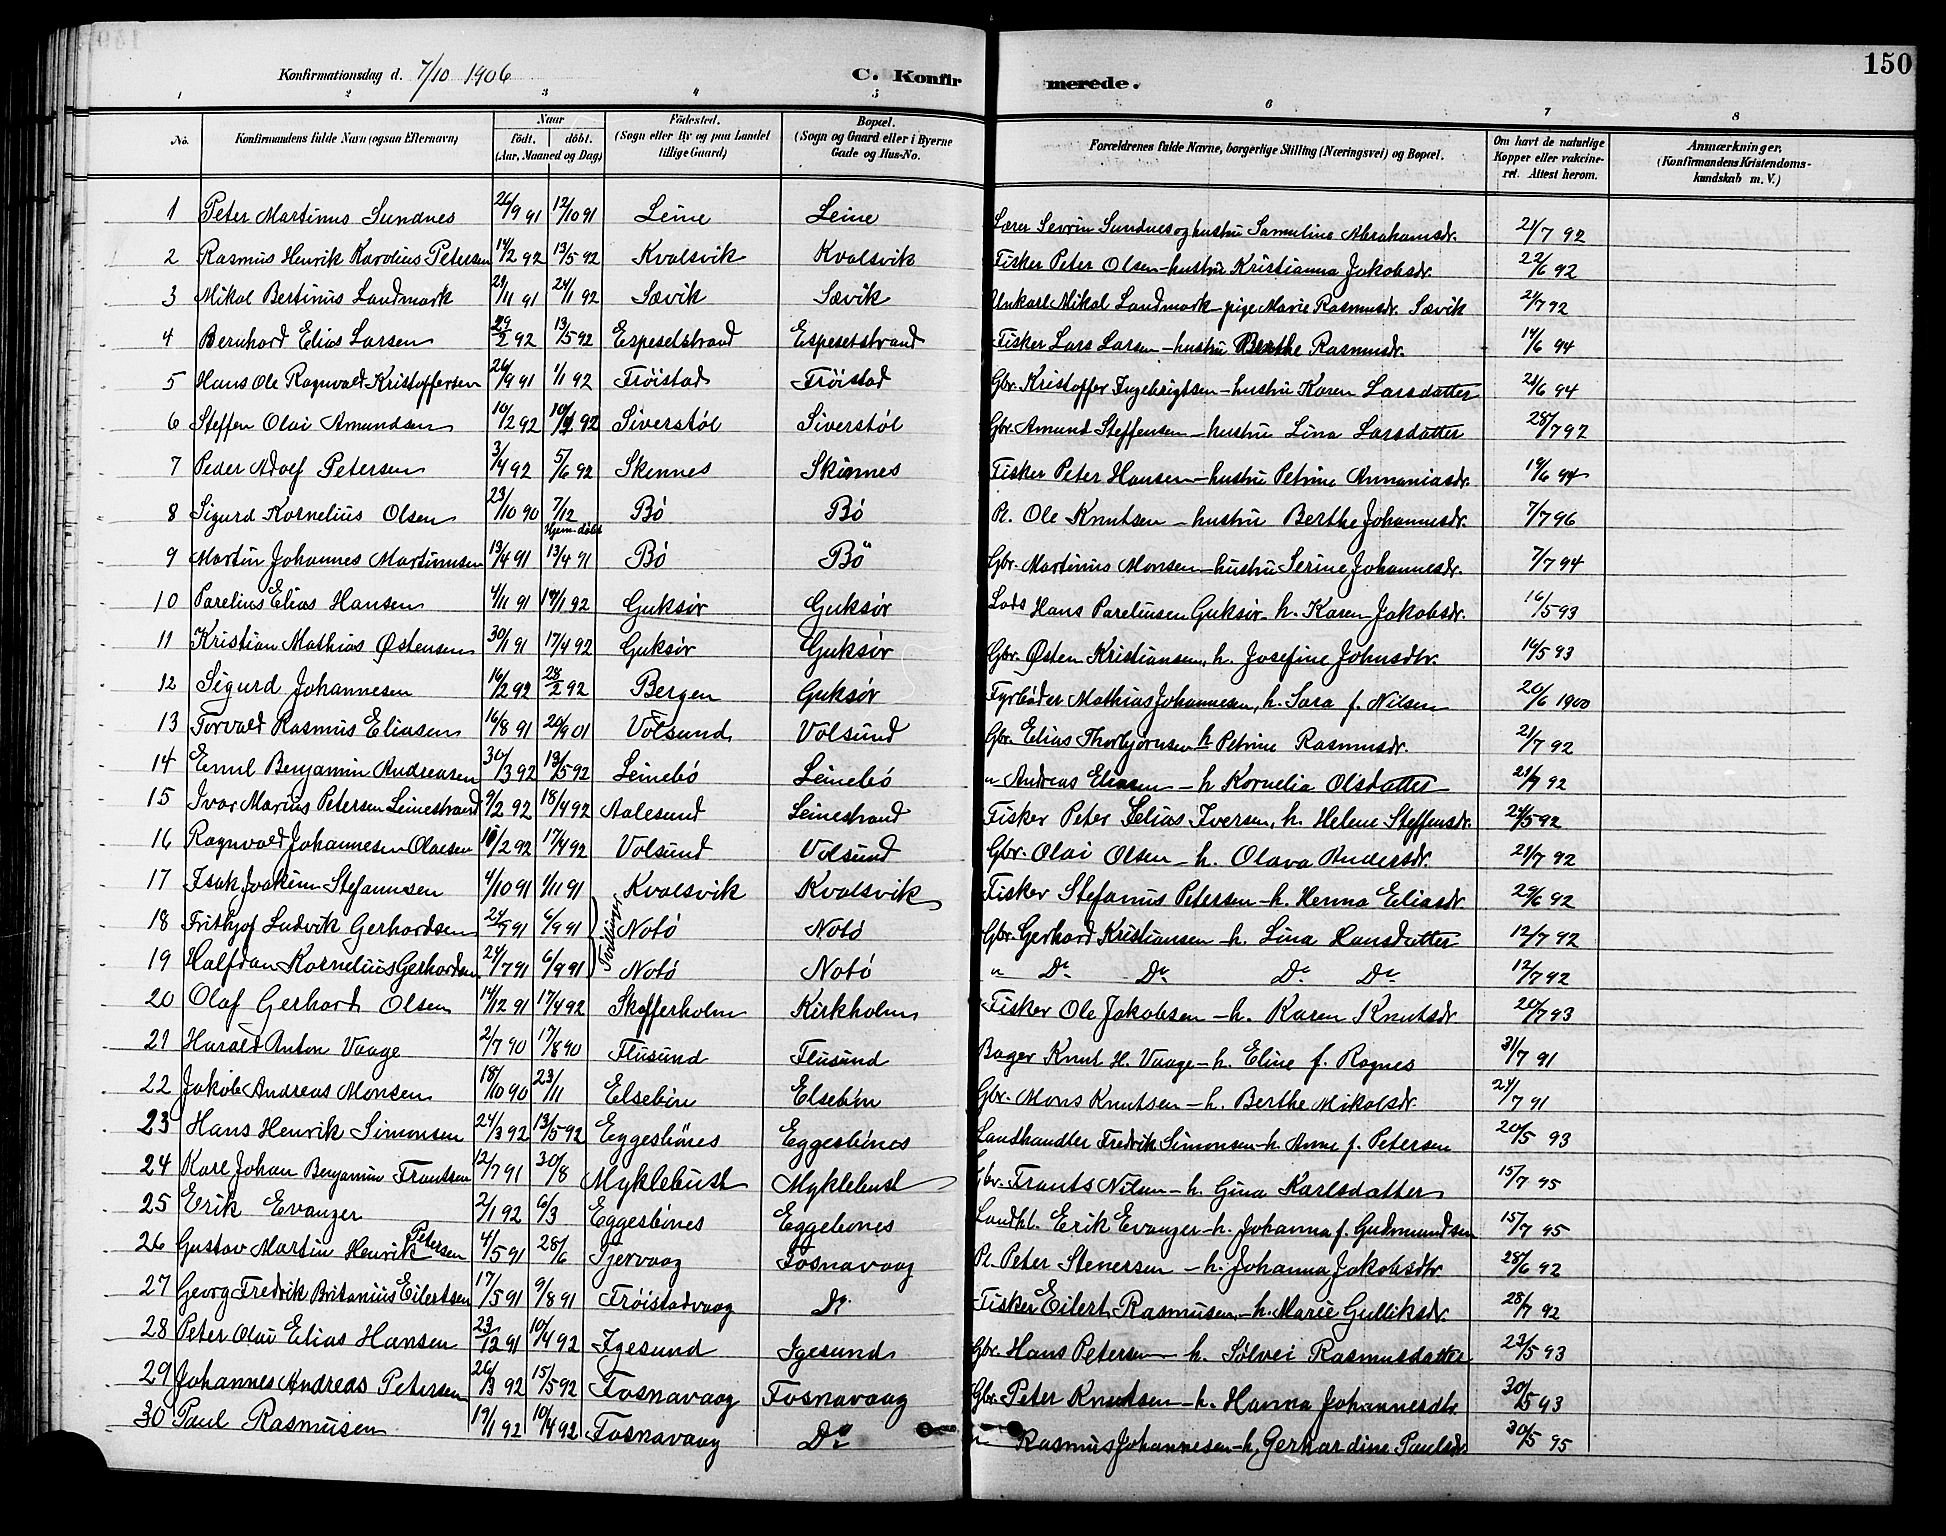 150
Konfirmationsdag d. 7/10 1906 C. Konfirmerede.
1 2 3 4 5 6 7 8
No. Konfirmandens fulde Navn (ogsaa Efternavn) Naar født. døbt. (Aar, Maaned og Dag) Fødested. (Sogn eller By og paa Landet tillige Gaard) Bopæl. (Sogn og Gaard eller i Byerne Gade og Hus-No. Forældrenes fulde Navne, borgerlige Stilling (Næringsvei) og Bopæl. Om havt de naturlige Kopper eller vakcineret. Attest herom. Anmærkninger. (Konfirmandens Kristendomskundskab m. V.)
1 Peter Martinus Sundnes 26/9 91 12/10 91 Leine Leine Lærer Sevrin Sundnes og hustru Samuline Abrahamsdr. 21/7 92
2 Rasmus Henrik Karolius Petersen 14/2 92 13/5 92 Kvalsvik Kvalsvik Fisker Peter Olsen - hustru Kristianna Jakobsdr. 22/6 92
3 Mikal Bertinus Landmark 29/11 91 24/1 92 Sævik Sævik Unkarl Mikal Landmark - pige Marie Rasmusdr. Sævik 2/7 92
4 Bernhard Elias Larsen 29/2 92 13/5 92 Espesetstrand Espesetstrand Fisker Lars Larsen - hustru Berthe Rasmusdr. 14/6 94
5 Hans Ole Ragnvald Kristoffersen 26/9 91 1/1 92 Frøistad Frøistad Gbr. Kristoffer Ingebrigtsen - hustru Karen Larsdatter 21/6 94
6 Steffen Olai Amundsen 10/2 92 10/4 92 Siverstøl Siverstøl Gbr. Amund Steffensen - hustru Lina Larsdatter 28/7 92
7 Peder Adolf Petersen 3/4 92 5/6 92 Skennes Skinnes Fisker Peter Hansen - hustru Petrine Annaniasdr. 19/6 94
8 Sigurd Kornelius Olsen 23/10 90 7/12 Bø Bø Pl. Ole Knutsen - hustru Berthe Johannesdr. 7/7 96
Hjem-døbt
9 Martin Johannes Martinusen 13/4 91 13/4 91 Bø Bø Gbr. Martinus Monsen - hustru Serine Johannesdr. 7/7 94
10 Parelius Elias Hansen 4/11 91 14/1 92 Guksør Guksør Lods Hans Pareliusen Guksør - h. Karen Jakobsdr. 16/5 93
11 Kristian Mathias Østensen 30/11 91 17/4 92 Guksør Guksør Gbr. Østen Kristiansen, h. Josefine Johnsdtr. 14/5 93
12 Sigurd Johannesen 16/2 92 28/2 92 Bergen Guksør Fyrbøder Mathias Johannesen, h. Sara f. Nilsen 20/6 1900
13 Torvald Rasmus Eliasen 16/8 91 20/9 01 Volsund Volsund Gbr. Elias Thorbjørnsen h. Petrine Rasmusdr. 21/7 92
14 Emil Benjamin Andreasen 30/3 92 13/5 92 Leinebø Leinebø " Andreas Eliasen - h Kornelia Olsdatter 21/7 92
15 Ivar Marius Petersen Leinestrand 9/2 92 18/4 92 Aalesund Leinestrand Fisker Peter Elias Iversen, h. Helene Steffensdr. 24/5 92
16 Ragnvald Johannesen Olaisen 10/2 92 17/4 92 Volsund Volsund Gbr. Olai Olsen - h. Olava Andersdr. 21/7 92
17 Isak Joakim Stefanusen 4/10 91 1/11 91 Kvalsvik Kvalsvik Fisker Stefanus Petersen - h. Henna Eliasdr. 29/6 92
18 Frithjof Ludvik Gerhardsen 24/7 91 6/9 91 Tvillinger Notø Notø Gbr. Gerhard Kristiansen - h. Lina Hansdatter 12/7 92
19 Halfdan Kornelius Gerhardsen 24/7 91 6/9 91 Notø Notø " Do Do Do Do 12/7 92
20 Olaf Gerhard Olsen 14/12 91 17/4 92 Skefferholm Kirkholm Fisker Ole Jakobsen - h. Karen Knutsdr 20/7 93
21 Harald Anton Vaage 2/7 90 17/8 90 Flusund Flusund Bager Knut H. Vaage - h. Eline f. Rognes 31/7 91
22 Jakob Andreas Monsen 18/10 90 23/11 Elsebøn Elsebøn Gbr. Mons Knutsen - h. Berthe Mikalsdr 24/7 91
23 Hans Henrik Simonsen 24/3 92 13/5 92 Eggesbønes Eggesbønes Landhandler Fredrik Simonsen - h Anne f. Petersen 20/5 93
24 Karl Johan Benjamin Frantsen 12/7 91 30/8 Myklebust Myklebust Gbr. Frants Nilsen - h. Gina Karlsdatter 15/7 95
25 Erik Evanger 2/1 92 6/3 Eggesbønes Eggebønes Landhl. Erik Evanger - h. Johanna f. Gudmundsen 15/7 95
26 Gustav Martin Henrik Petersen 4/5 91 28/6 Tjervaag Fosnavaag Pl. Peter Stenersen - h. Johanna Jakobsdtr. 28/6 92
27 Georg Fredrik Britanius Eilertsen 17/5 91 9/8 91 Frøistadvaag Do. Fisker Eilert Rasmusen - h. Marie Gulliksdr. 28/7 92
28 Peter Olai Elias Hansen 23/12 91 10/4 92 Igesund Igesund Gbr. Hans Petersen - h. Sølvei Rasmusdatter 23/5 93
29 Johannes Andreas Petersen 26/3 92 15/5 92 Fosnavaag Fosnavaag Gbr. Peter Knutsen - h. Hanna Johannesdtr. 30/5 93
30 Paul Rasmusen 19/1 92 10/4 92 Fosnavaag Do " Rasmus Johannesen - h. Gerhardine Paulsdr. 30/5 95